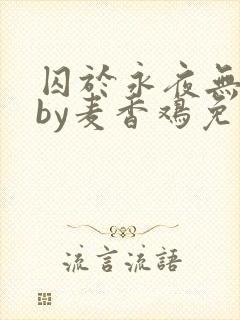 囚於永夜無
by麦香鸡免
流言流語